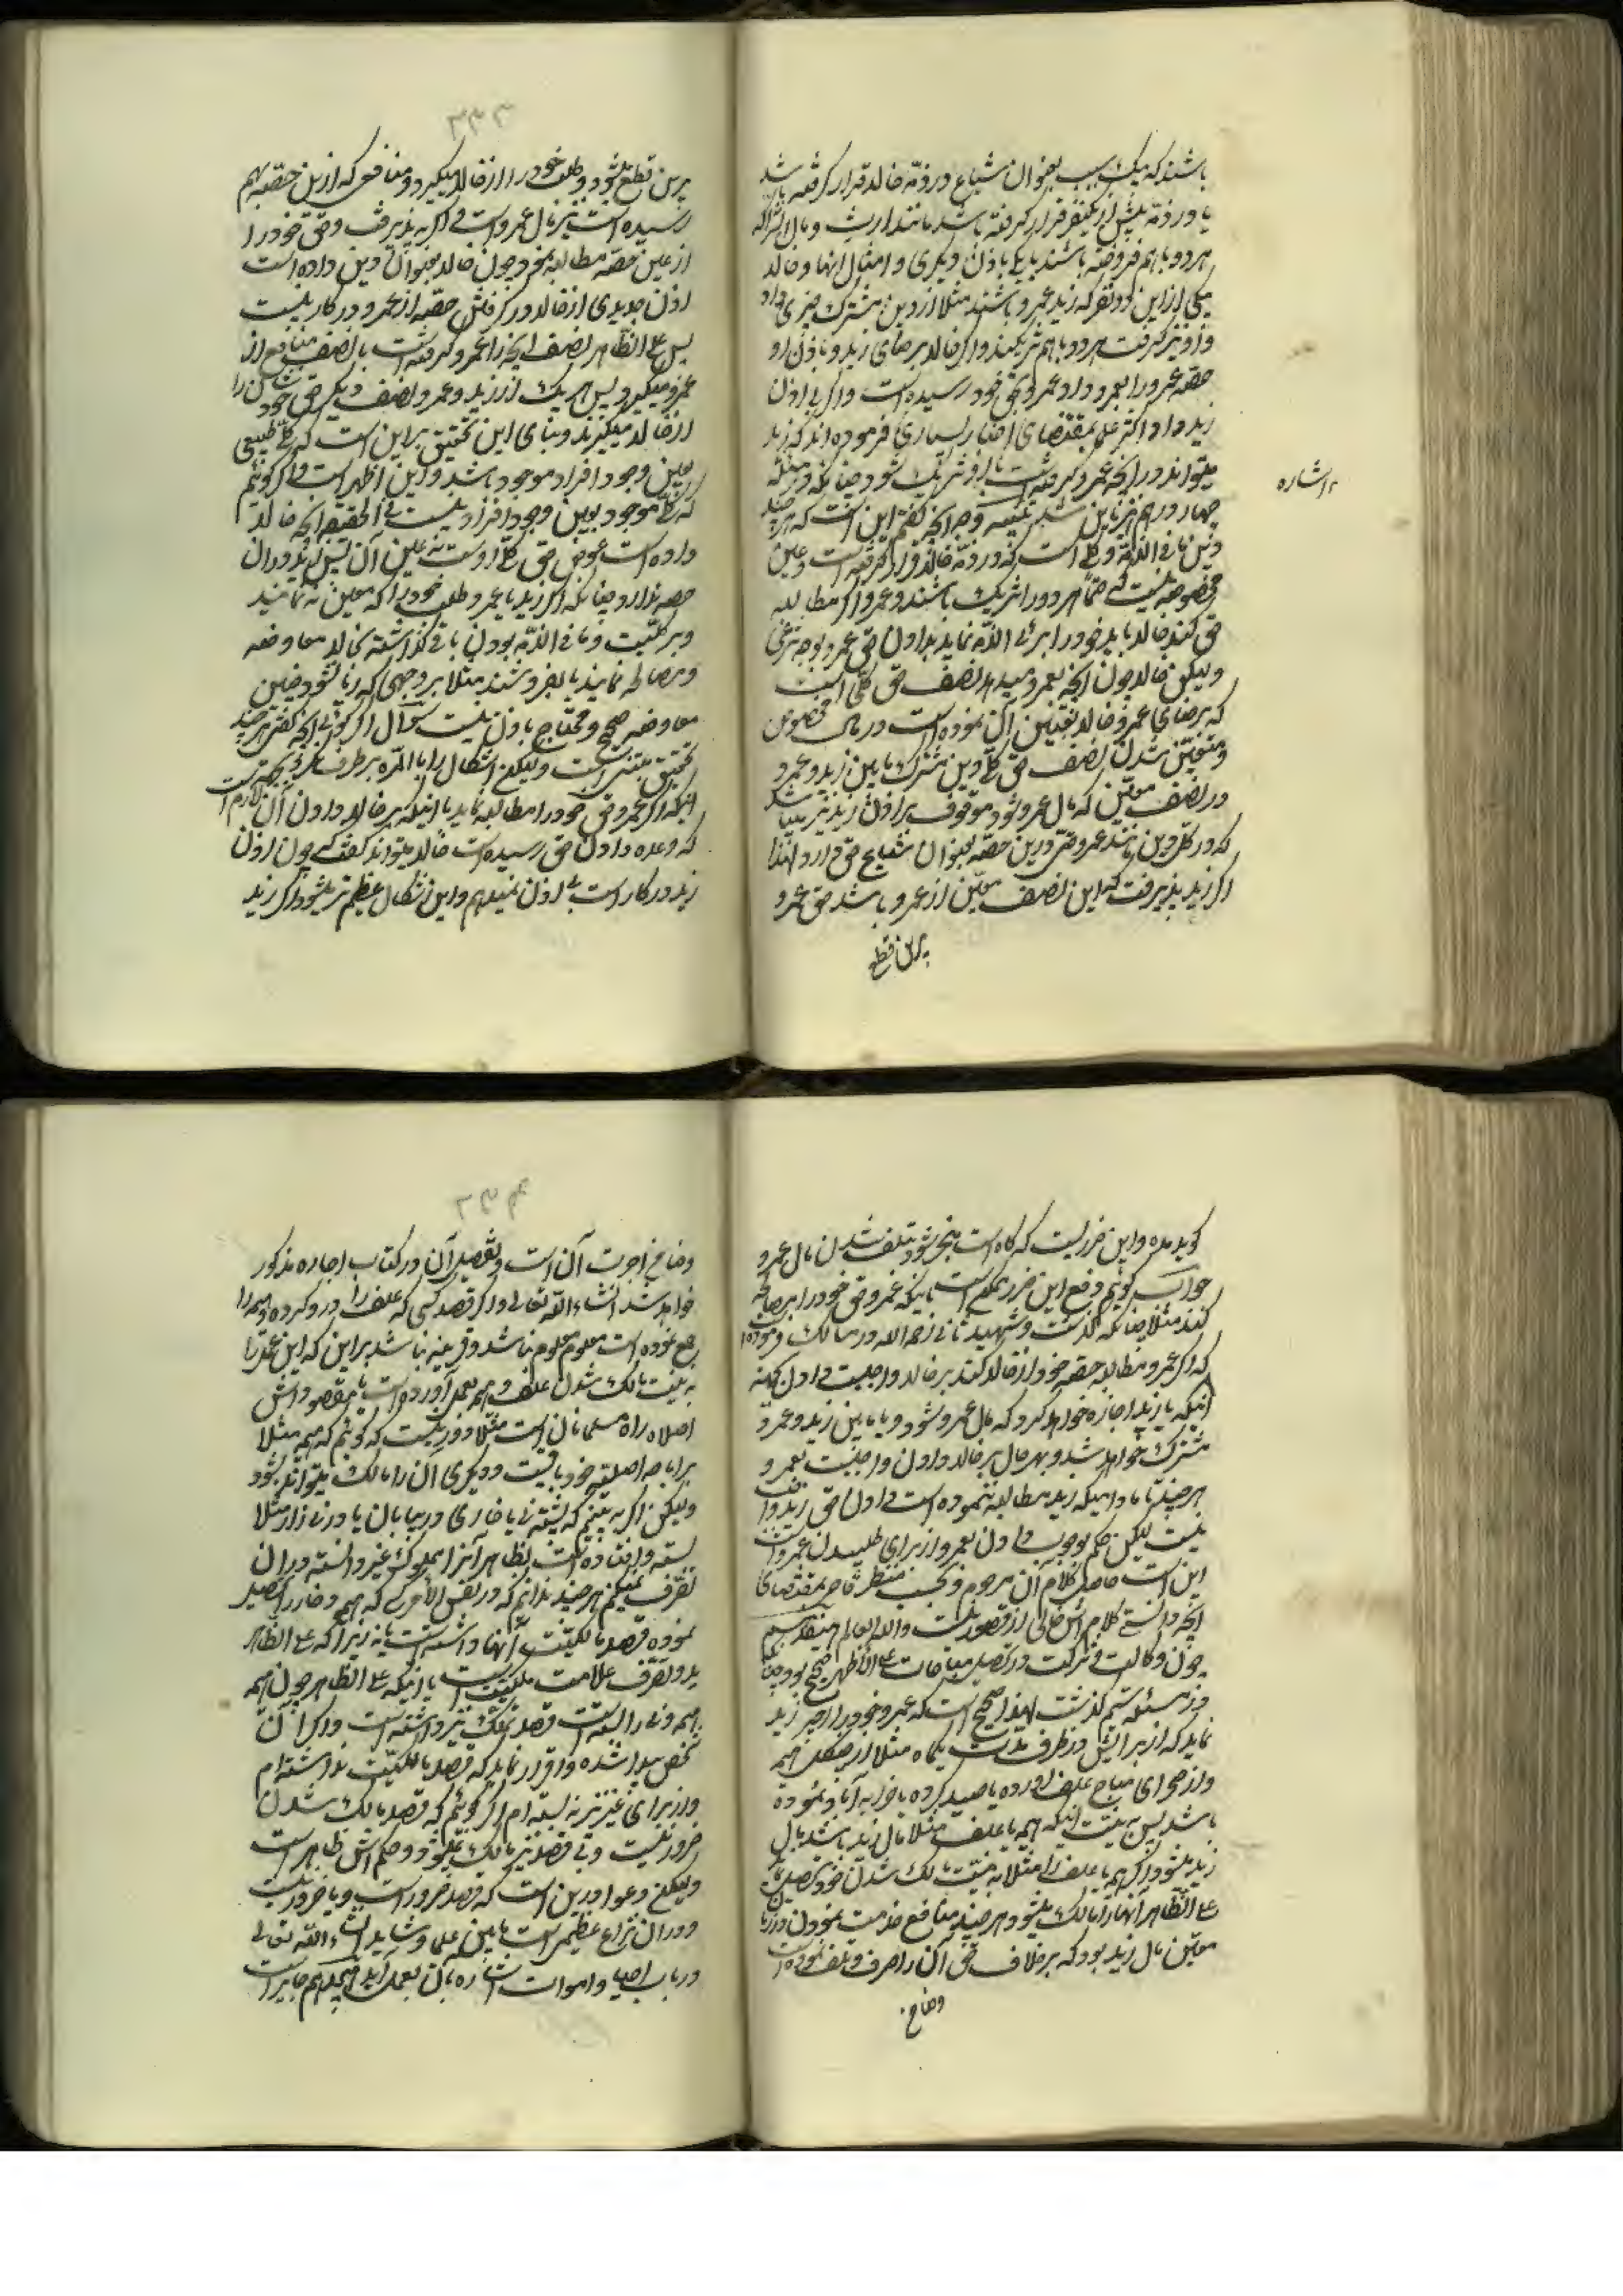 باشند که بیک سبب بعنوان مشاع در ذمّه خالد قرار گرفته باشد
یا در ذمّه پیش از یکنفر قرار گرفته باشد مانند ارث و مال
هر دو با هم فروخته باشند یا یکی باذن دیگری و امثال اینها و خالد
یکی از این دو نفر که زید و عمرو باشند مثلا از دین مشترک چیزی داد
و او نیز گرفت هر دو با هم شریکند و اگر خالد برضای زید و باذن او
حصّه عمرو را بعمرو داد عمرو بحق خود رسیده است و اگر بی اذن
زید داد اکثر علما بمقتضای اخبار بسیاری فرموده‌اند که زید
میتواند در آنچه عمرو گرفته است با او شریک شود چنانکه در مسئله
اشاره
چهار در هم شد وجه آنچه گفتم این است که هر چند
دین ما فی الذمّه و کلی است که در ذمّه خالد قرار گرفته است و عین
مخصوصه نیست که هر دو در او شریک باشند و عمرو اگر مطالبه
حق کند خالد باید خود را بری الذمّه نماید بدادن حق عمرو بوجه شرعی
و لیکن خالد چون آنچه بعمرو میدهد نصف حق کلی است
که برضای عمرو و خالد تعیین آن نموده است در مال مخصوص
و متعیّن شدن نصف حق کلی دین مشترک مابین زید و عمرو
در نصف معیّن که مال عمرو شود موقوف بر اذن زید نیز میباشد
که در کل دین مانند عمرو حق درین حصّه بعنوان مشاع حق دارد لهذا
اگر زید پذیرفت که این نصف معیّن از عمرو باشد حق عمرو
برین قطع
برین قطع میشود و طلب خود را از خالد میگیرد و منافعی که ازین حصّه بهم
رسیده است نیز مال عمرو است و اگر نپذیرفت و حق خود را
از عین حصّه مطالبه نمود چون خالد بعنوان دین داده است
اذن جدیدی از خالد در گرفتن حصّه از عمرو در کار نیست
پس علی الظاهر نصف آنچه را عمرو گرفته است با نصف منافع از
عمرو میگیرد پس هر یک از زید و عمرو نصف دیگر حق خودشان را
از خالد میگیرند و بنای این تحقیق بر این است که کلی طبیعی
بعین وجود افراد موجود باشد و این اظهر است و اگر گوئیم
که کلی موجود بعین وجود افراد نیست فی الحقیقه آنچه خالد
داده است عوض حق کلی اوست نه عین آن پس زید در آن
حصّه ندارد چنانکه اگر زید یا عمرو طلب خود را که معین نه نمایند
و بر کلیّت و ما فی الذمّه بودن باقی گذاشته بخالد معاوضه
و مصالحه نمایند یا بفروشند مثلا بر وجهی که ربا نشود چنین
معاوضه صحیح و محتاج باذن نیست سؤال اگر گوئی آنچه گفتی هر چند
تحقیق متین است و لیکن اشکال را بالمرّه بر طرف نکرد بجهت
اینکه اگر عمرو حق خود را مطالبه نماید با اینکه بر خالد دادن آن لازم است
که وعده دادن حق رسیده است خالد میتواند گفت که چون اذن
زید در کار است بی اذن نمیدهم و این اشکال عظیم‌تر میشود اگر زید
گوید مده و این ضرریست که گاه است منجر شود بتلف شدن مال عمرو
جواب گوئیم دفع این ضرر ممکن است باینکه عمرو حق خود را بمصالحه
کند مثلا چنانکه گذشت و شهید ثانی رحمه الله در مسالک فرموده
که اگر عمرو مطالبه حصّه خود از خالد کند بر خالد واجبست دادن بجهة
اینکه یا زید اجازه خواهد کرد که مال عمرو شود و یا مابین زید و عمرو
مشترک خواهد شد و بهر حال بر خالد دادن واجبست بعمرو
هر چند تا مادامیکه زید مطالبه ننموده است دادن حق زید واجب
نیست لیکن حکم بوجوب دادن بعمرو از برای طلبیدن عمرو است
این است حاصل کلام آن مرحوم و بحسب نظر قاصر بمقتضای
آنچه دانستی کلامش خالی از قصور نیست و الله العالم
چون وکالت و شرکت در تحصیل مباحات علی الاظهر صحیح بود چنانکه
در مسئله ششم گذشت لهذا صحیح است که عمرو خود را اجیر زید
نماید که از برایش در ظرف مدّت یکماه مثلا از جنگل هیمه
و از صحرای مباح علف آورده یا صید کرده یا خرابه آباد نموده
باشد پس به نیّت اینکه هیمه یا علف مثلا مال زید باشد مال
زید میشود و اگر هیمه یا علف را مثلا به نیّت مالک شدن خود تحصیل نماید
علی الظاهر آنها را مالک میشود هر چند منافع خدمت نمودن در زمان
معیّن مال زید بود که بر خلاف حق آن را صرف و تلف نموده است
و ضامن
و ضامن اجرت آن است و تفصیل آن در کتاب اجاره مذکور
خواهد شد انشاء الله تعالی و اگر قصد کسی که علف را درو کرده و هیمه را
جمع نموده است معلوم نباشد و قرینه نباشد بر این که این عمل را
به نیّت مالک شدن علف و هیمه بعمل آورده است یا مقصودش
اصلاح راه مسلمانان است مثلا دور نیست که گوئیم که هیمه مثلا
بر اباحه اصلیّه خود باقیست و دیگری آن را مالک میتواند بشود
و لیکن اگر به بینیم که پشته نی یا خاری در بیابان یا در نی زار مثلا
بسته و افتاده است بظاهر آنرا مملوک غیر دانسته در آن
تصرّف نمیکنیم هر چند ندانیم که در نفس الامر کسی که هیمه و خار را تحصیل
نموده قصد مالکیّت آنها داشته است یا نه زیرا که علی الظاهر
ید و تصرّف علامت ملکیّت است با اینکه علی الظاهر چون هیمه
هیمه و نی را بسته است قصد تملّک نیز داشته است و اگر آن
شخص پیدا شده و اقرار نماید که قصد مالکیّت نداشته‌ام
و از برای غیر نیز نه بسته‌ام اگر گوئیم که قصد مالک شدن
ضرور نیست و بی قصد نیز مالک میشود حکمش ظاهر است
و لیکن دعوا درین است که قصد ضرور است و یا ضرور نیست
و در آن نزاع عظیمی است مابین علما و شاید انشاء الله تعالی
در باب احیاء اموات اشاره بآن بعمل آید هم جایز است